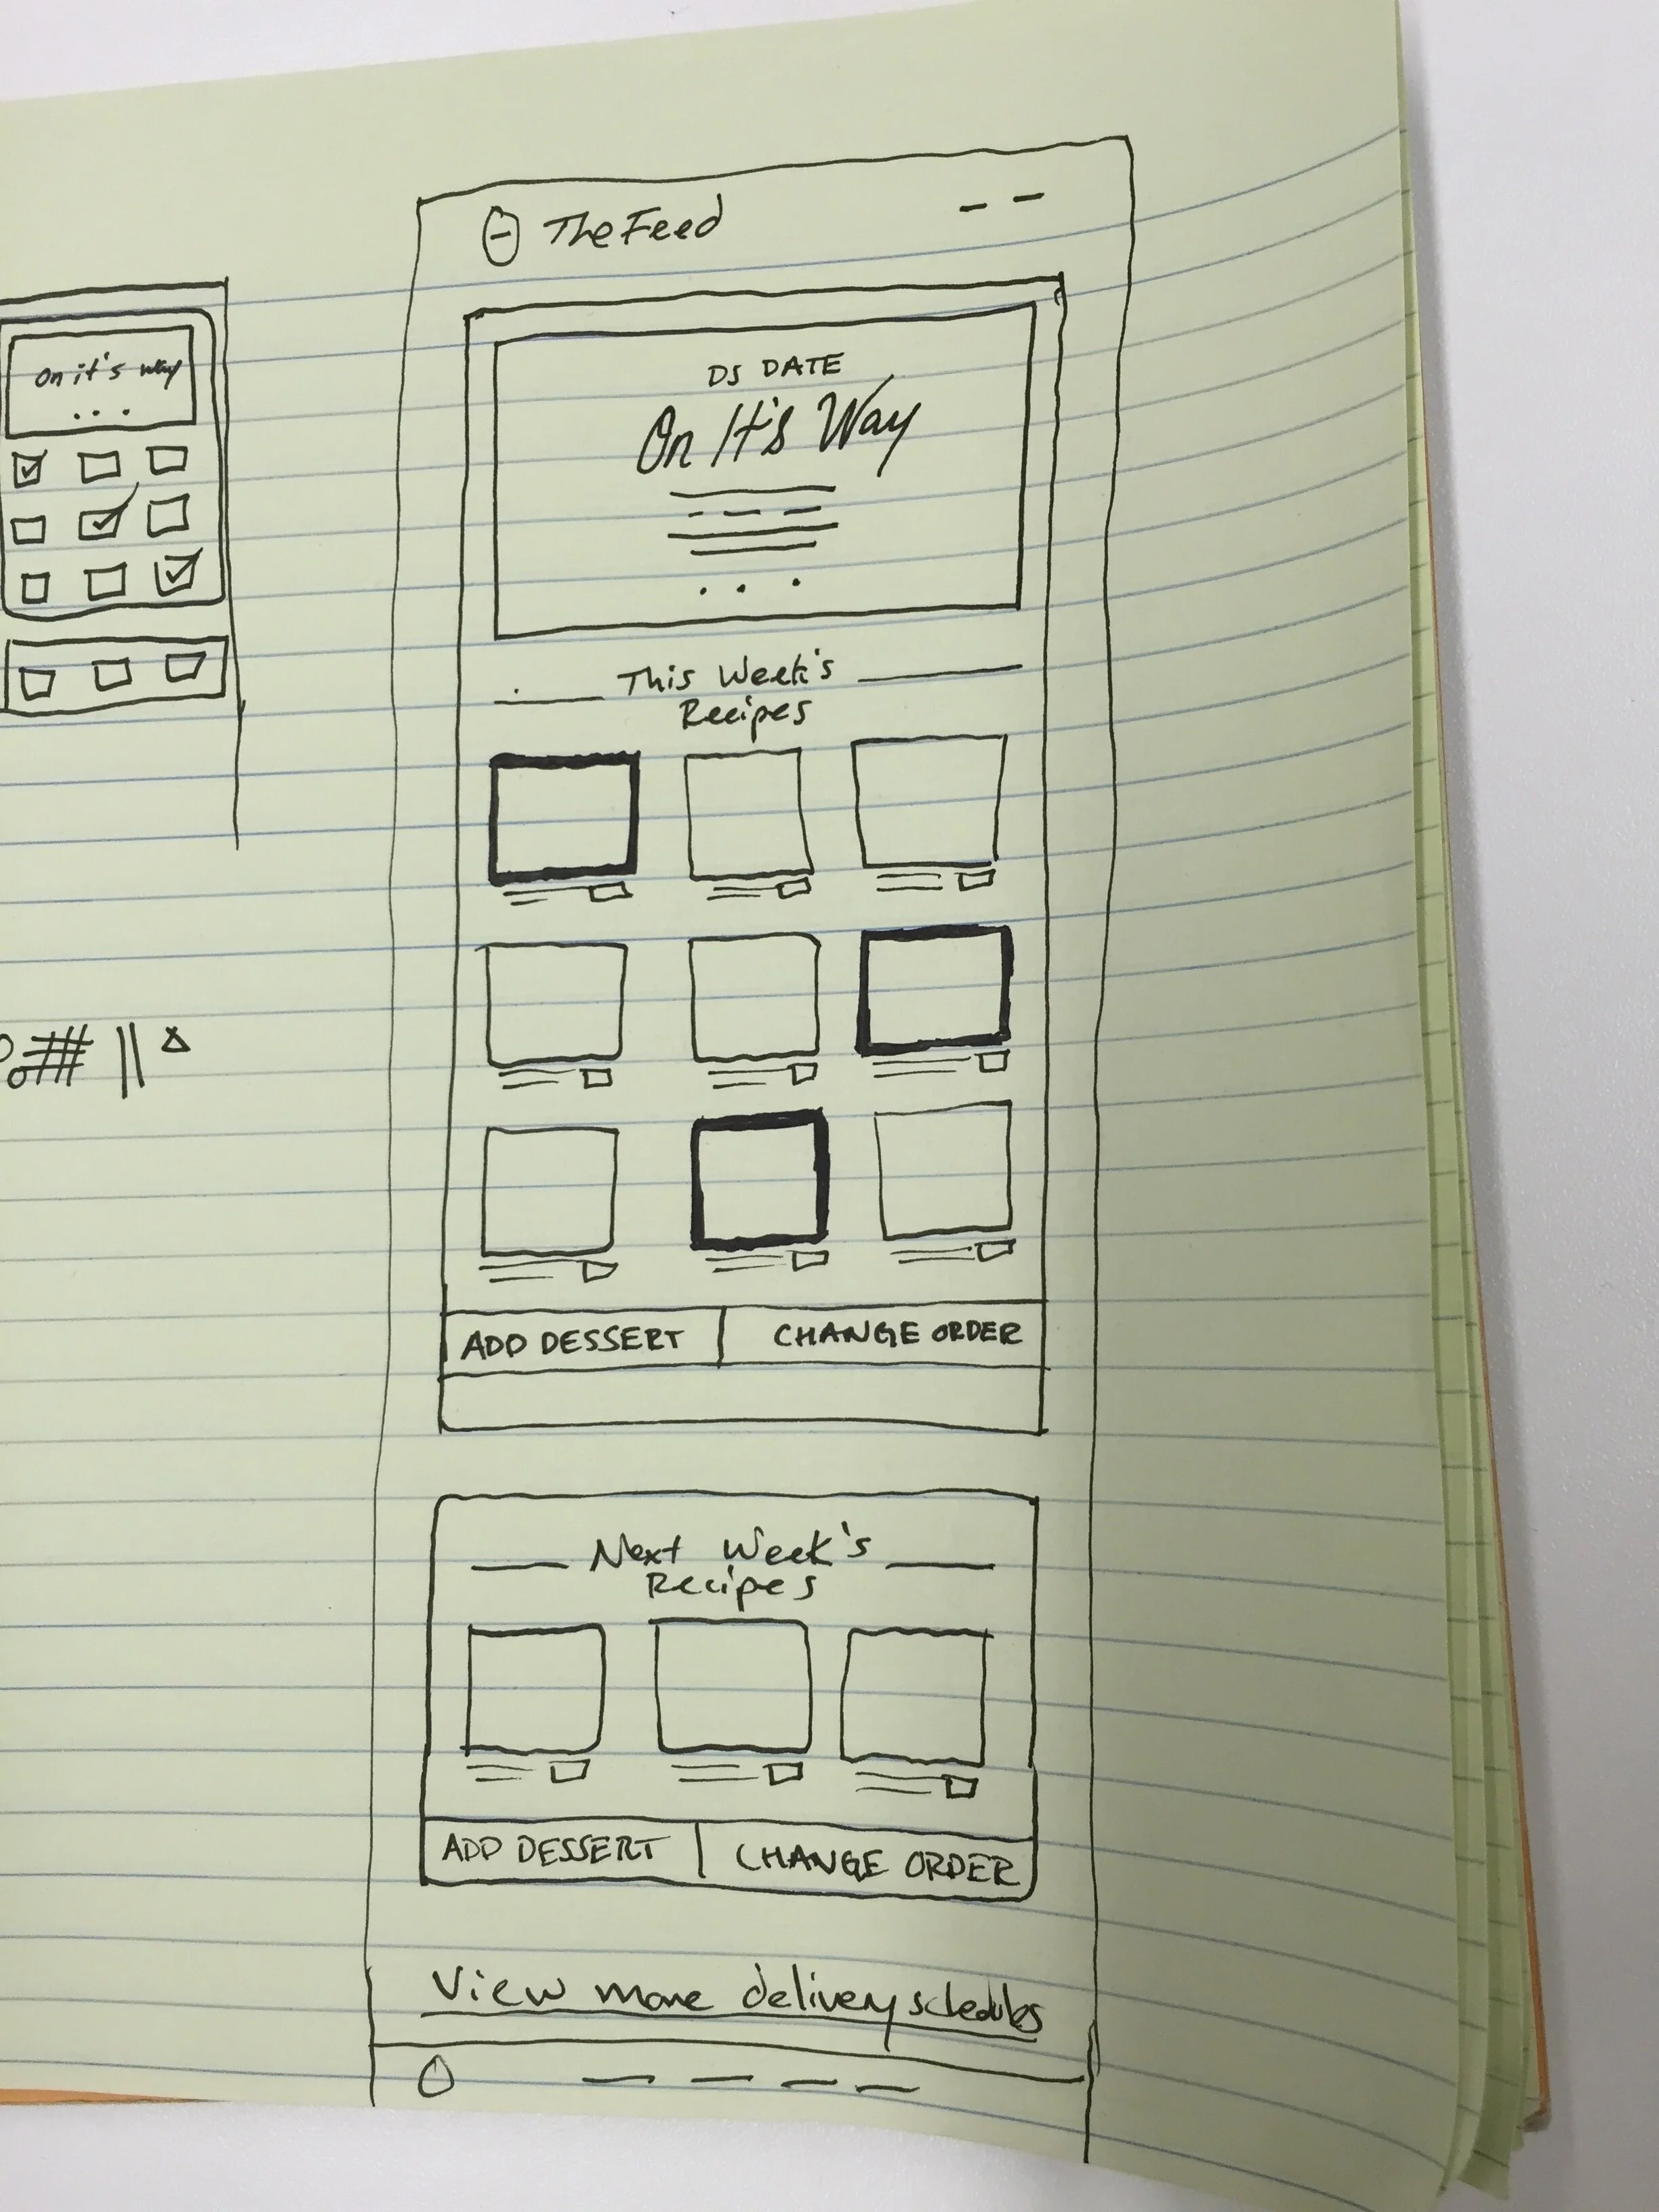 On it's way
The Feed
DS DATE
On It's Way
This Week's
Recipes
ADD DESSERT
CHANGE ORDER
Next Week's
Recipes
ADD DESSERT
CHANGE ORDER
View more delivery schedules